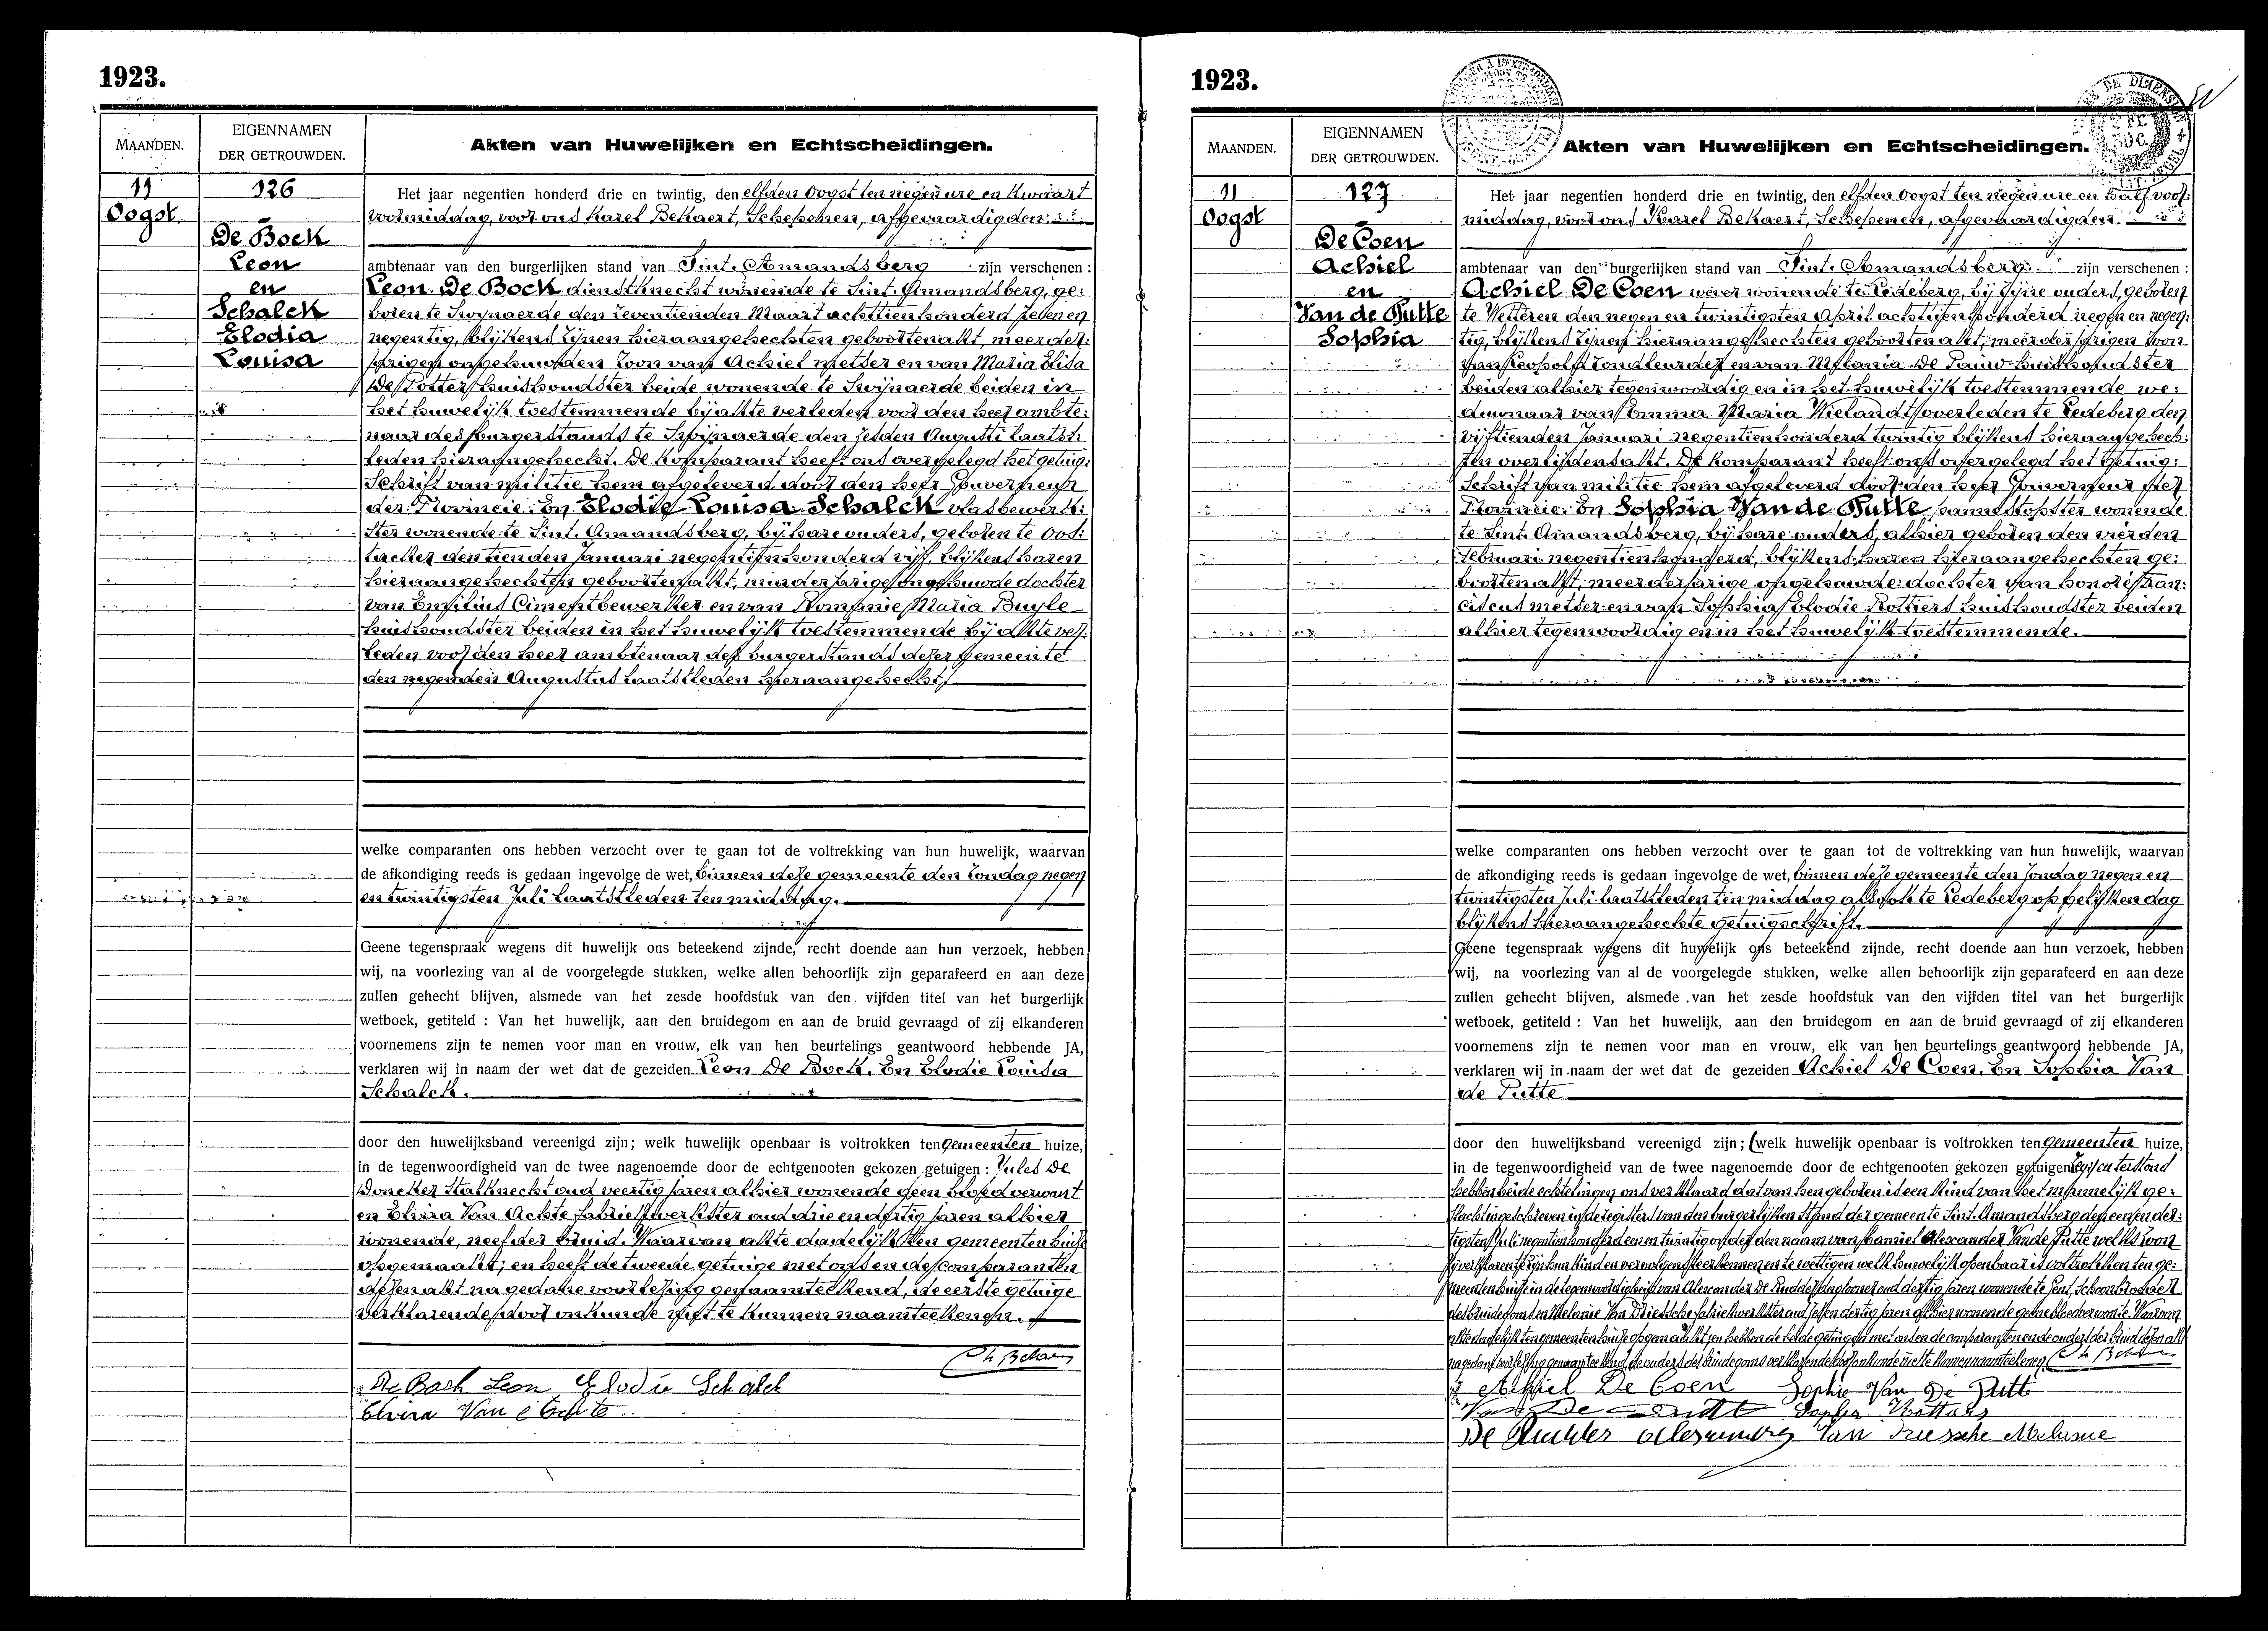 1923.
MAANDEN.
EIGENNAMEN
DER GETROUWDEN.
Akten van Huwelijken en Echtscheidingen.
11
Oogst
126
De Bock
Leon
en
Schalck
Elodia
Louisa
Het jaar negentien honderd drie en twintig, den elfden Oogst ten negen ure en kwaart
voormiddag, voor ons Karel Bekaert, Schepenen, afgevaardigden
ambtenaar van den burgerlijken stand van Sint-Amandsberg zijn verschenen :
Leon De Bock dienstknecht wonende te Sint-Amandsberg, ge:
boren te Swijnaerde den zeventienden Maart achttienhonderd zeven en
negentig, blijkens zijnen hieraangehechten geboortenakt, meerder:
jarigen ongehuwden zoon van Achiel metser en van Maria Elisa
De Potter huishoudster beide wonende te Swijnaerde beiden in
het huwelijk toestemmende bij akte verleden voor den heer ambte:
naar des burgerstands te Swijnaerde den zesden Augusti laatst:
leden hieraangehecht. De komparant heeft ons overgelegd het getuig:
schrift van militie hem afgeleverd door den heer Gouverneur
der Provincie. En Elodie Louisa Schalck vlasbewerk:
ster wonende te Sint-Amandsberg, bij hare ouders, geboren te Oos:
tacker den tienden Januari negentienhonderd vijf, blijkens haren
hieraangehechten geboortenakt, minderjarige ongehuwde dochter
van Emilius Cimentbewerker en van Romanie Maria Buyle
huishoudster beiden in het huwelijk toestemmende bij akte ver:
leden voor den heer ambtenaar des burgerstands dezer gemeente
den negenden Augustus laatstleden hieraangehecht.
welke comparanten ons hebben verzocht over te gaan tot de voltrekking van hun huwelijk, waarvan
de afkondiging reeds is gedaan ingevolge de wet, binnen deze gemeente den zondag negen
en twintigsten Juli laatstleden ten middag.
Geene tegenspraak wegens dit huwelijk ons beteekend zijnde, recht doende aan hun verzoek, hebben
wij, na voorlezing van al de voorgelegde stukken, welke allen behoorlijk zijn geparafeerd en aan deze
zullen gehecht blijven, alsmede van het zesde hoofdstuk van den vijfden titel van het burgerlijk
wetboek, getiteld : Van het huwelijk, aan den bruidegom en aan de bruid gevraagd of zij elkanderen
voornemens zijn te nemen voor man en vrouw, elk van hen beurtelings geantwoord hebbende JA,
verklaren wij in naam der wet dat de gezeiden Leon De Bock. En Elodie Louisa
Schalck.
door den huwelijksband vereenigd zijn; welk huwelijk openbaar is voltrokken ten gemeenten huize,
in de tegenwoordigheid van de twee nagenoemde door de echtgenooten gekozen getuigen : Jules De
Doncker stalknecht oud veertig jaren alhier wonende geen bloedverwant
en Elvira Van Achte fabriekwerkster oud drie en dertig jaren alhier
wonende, neef der bruid. Waarvan akte dadelijk ten gemeenten huize
opgemaakt; en heeft de tweede getuige met ons en de comparanten
dezen akt na gedane voorlezing genaamteekend, de eerste getuige
verklarende door onkunde niet te kunnen naamteekenen.
De Bock Leon Elodie Schalck
Elvira Van Achte
1923.
MAANDEN.
EIGENNAMEN
DER GETROUWDEN.
Akten van Huwelijken en Echtscheidingen.
11
Oogst
127
De Coen
Achiel
en
Van de Putte
Sophia
Het jaar negentien honderd drie en twintig, den elfden Oogst ten negen ure en half voor:
middag, voor ons Karel Bekaert, Schepenen, afgevaardigden
ambtenaar van den burgerlijken stand van Sint-Amandsberg zijn verschenen :
Achiel De Coen wever wonende te Ledeberg, bij zijne ouders, geboren
te Wetteren den negen en twintigsten April achttienhonderd negen en negen:
tig, blijkens zijnen hieraangehechten geboortenakt, meerderjarigen zoon
van Leopold en van Melania De Pauw huishoudster
beiden alhier tegenwoordig en in het huwelijk toestemmende we:
duwnaar van Emma Maria Wielandt overleden te Ledeberg den
vijftienden Januari negentienhonderd twintig blijkens hieraangehech:
ten overlijdensakt. De komparant heeft ons overgelegd het getuig:
schrift van militie hem afgeleverd door den heer Gouverneur der
Provincie. En Sophia Van de Putte pannestopster wonende
te Sint-Amandsberg, bij hare ouders, alhier geboren den vierden
Februari negentienhonderd, blijkens haren hieraangehechten ge:
boortenakt, meerderjarige ongehuwde dochter van Honoré Fran:
ciscus metser en van Sophia Elodie Rottiers huishoudster beiden
alhier tegenwoordig en in het huwelijk toestemmende.
welke comparanten ons hebben verzocht over te gaan tot de voltrekking van hun huwelijk, waarvan
de afkondiging reeds is gedaan ingevolge de wet, binnen deze gemeente den zondag negen en
twintigsten Juli laatstleden ten middag alsook te Ledeberg op gelijken dag
blijkens hieraangehechte getuigschrift.
Geene tegenspraak wegens dit huwelijk ons beteekend zijnde, recht doende aan hun verzoek, hebben
wij, na voorlezing van al de voorgelegde stukken, welke allen behoorlijk zijn geparafeerd en aan deze
zullen gehecht blijven, alsmede van het zesde hoofdstuk van den vijfden titel van het burgerlijk
wetboek, getiteld : Van het huwelijk, aan den bruidegom en aan de bruid gevraagd of zij elkanderen
voornemens zijn te nemen voor man en vrouw, elk van hen beurtelings geantwoord hebbende JA,
verklaren wij in naam der wet dat de gezeiden Achiel De Coen. En Sophia Van
de Putte
door den huwelijksband vereenigd zijn; (welk huwelijk openbaar is voltrokken ten gemeenten huize,
in de tegenwoordigheid van de twee nagenoemde door de echtgenooten gekozen getuigen en terstond
hebben beide echtelingen ons verklaard dat van hen geboren is een kind van het mannelijk ge:
slacht ingeschreven in de registers van den burgerlijken stand der gemeente Sint-Amandsberg den eenen der:
tigsten Juli negentienhonderd een en twintig onder den naam van Daniel Alexander Van de Putte welke zoon
zij verklaren te zijn hun kind en vervolgens te erkennen en te wettigen welk huwelijk openbaar is voltrokken ten ge:
meentenhuize in de tegenwoordigheid van Alexander De Rudder oud dertig jaren wonende te Gent, schoonbroeder
des bruidegoms en Melanie Van Driessche fabriekwerkster oud zes en dertig jaren alhier wonende geene bloedverwante. Waarvan
akte dadelijk ten gemeenten huize opgemaakt; en hebben de beide getuigen met ons en de comparanten en de ouders der bruid dezen akt
na gedane voorlezing genaamteekend, de ouders des bruidegoms verklarende door onkunde niet te kunnen naamteekenen.
Achiel De Coen Sophie Van De Putte
Van Driessche Melanie